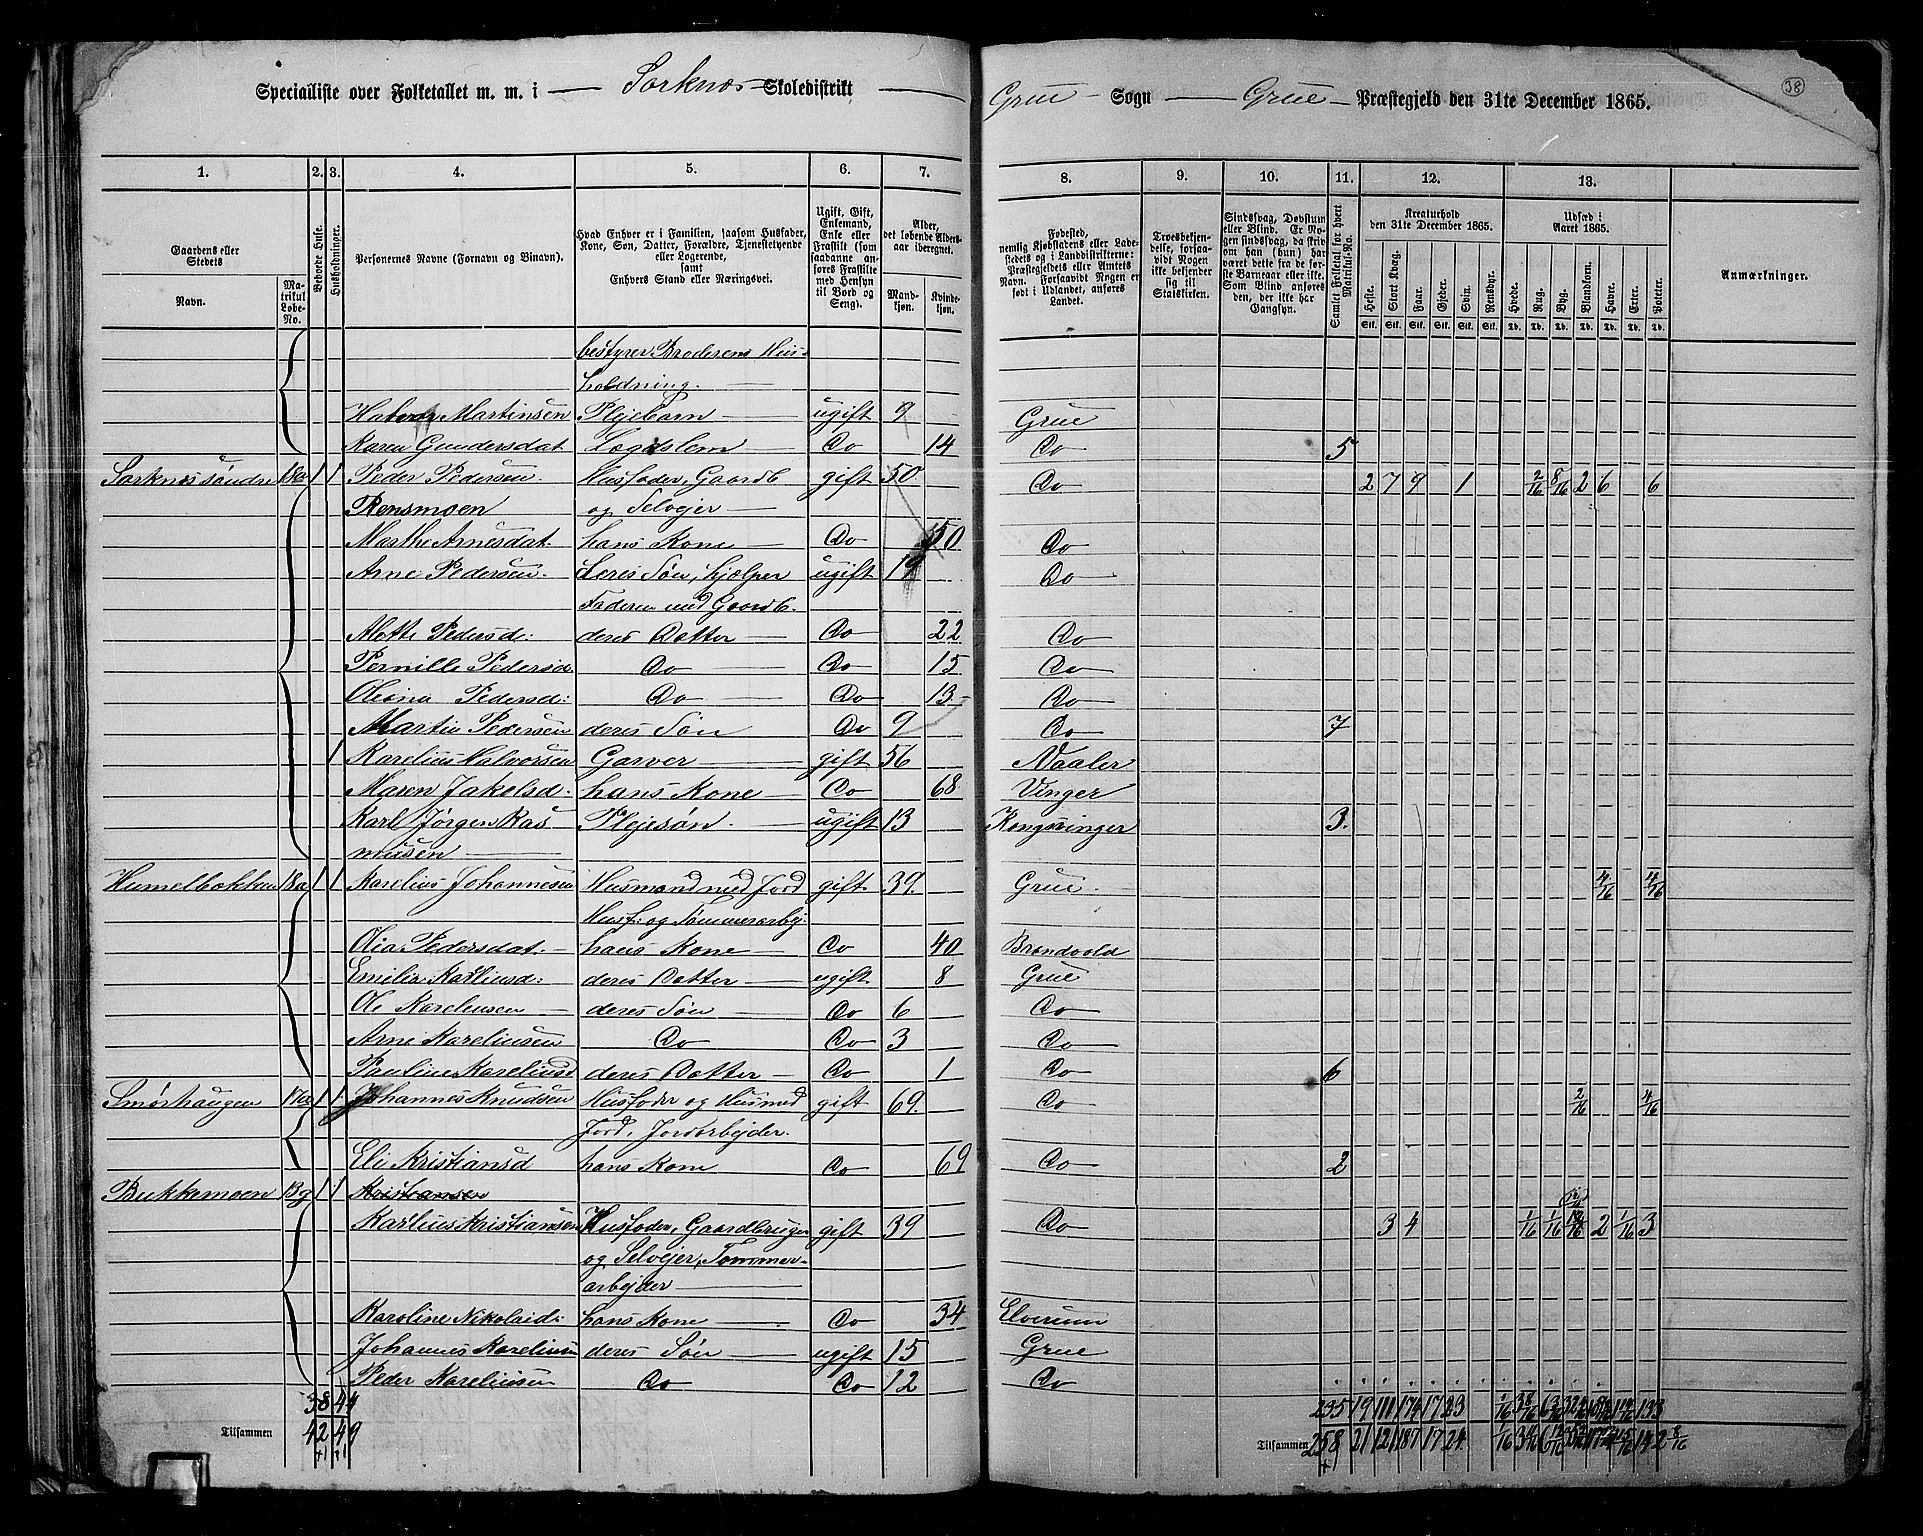 Specialliste over Folketallet m. m. i Sorknæs Skoledistrikt Grue Sogn Grue Præstegjeld den 31te December 1865.
38
1. 2. 3. 4. 5. 6. 7. 8. 9. 10. 11. 12. 13.
Gaardens eller Stedets
Navn.
Matrikul Løbe-No.
Beboede Huse.
Husholdninger.
Personernes Navne (Fornavn og Binavn).
Hvad Enhver er i Familien, saasom Husfader, Kone, Søn, Datter, Forældre, Tjenestetyende eller Logerende, samt Enhvers Stand eller Næringsvei.
Ugift, Gift, Enkemand, Enke eller Fraskilt (som saadanne anføres Fraskilte med Hensyn til Bord og Seng).
Alder, det løbende Aldersaar iberegnet.
Mandkjøn. Kvindekjøn.
Fødested, nemlig Kjøbstadens eller Ladestedets og i Landdistrikterne: Præstegjeldets eller Amtets Navn. Forsaavidt Nogen er født i Udlandet, anføres Landet.
Troesbekjendelse, forsaavidt Nogen ikke bekjender sig til Statskirken.
Sindssvag, Døvstum eller Blind. Er Nogen sindssvag, da skrives om han (hun) har været dette fra de første Barneaar eller ikke. Som Blind ansøres den, der ikke har Gangsyn.
Samlet Folketal for hvert Matrikul-No.
Kreaturhold den 31te December 1865.
Heste. Stort Kvæg. Faar. Gjeder. Svin. Rensdyr.
Stk. Stk. Stk. Stk. Stk. Stk.
Udsæd i Aaret 1865.
Hvede. Rug. Byg. Blandkorn. Havre. Erter. Poteter.
Td. Td. Td. Td. Td. Td. Td.
Anmærkninger.
bestyrer Broderens Hus-
holdning.
Halvor Martinsen Plejebarn ugift 9 Grue
Karen Gundersdat. Lægdslem Do 14 Do 5
Sorknes søndre 18a 1 1 Peder Pedersen Husfader, Gaardb gift 50 Do 2 7 9 1 2/16 8/16 2 6 6
Rensmoen og Selvejer
Marthe Arnesdat. hans Kone Do 50 Do
Arne Pedersen. deres Søn, hjelper ugift 19 Do
Faderen med Gaardb.
Alette Pedersd: deres Datter Do 22 Do
Pernille Pedersd Do Do 15 Do
Oleana Pedersd: Do Do 13 Do
Martin Pedersen deres Søn Do 9 Do 7
1 Karelius Halvorsen Garver gift 56 Vaaler
Maren Jakobsd. hans Kone Do 68 Vinger
Karl Jørgen Ras Plejesøn. ugift 13 Kongsvinger 3.
musen
Humelbakken 18a 1 1 Karelius Johannesen Husmand med Jord gift 39. Grue 4/16 4/16
Husf: og Tømmerarbej:
Olia Pedersdat. hans Kone Do 40 Brandvold
Emilie Karliusd: deres Datter ugift 8 Grue
Ole Kareliusen deres Søn Do 6 Do
Arne Kareliusen Do Do 3 Do
Pauline Kareliusd deres Datter Do 1 Do 6
Smørhaugen 17a 1 1 Johannes Knudsen Husfader og Husmed gift 69. Do 2/16 4/16
Jord, Jordarbejder.
Eli Kristiansd hans Kone Do 69 Do 2
Bukkemoen 13g 1 1 Kristiansen
Karlius Kristiansen Husfader, Gaardbruger gift 39 Do 3 4 1/16 1/16 2 1/16 3
og Selvejer, Tømmer-
arbejder
Karoline Nikolaid: hans Kone Do 34 Elverum
Johannes Kareliusen deres Søn ugift 15 Grue
Peder Kareliusen Do Do 12 Do
38 44 235 19 111 174 17 23 1/16 133
Tilsammen 42 49 Tilsammen 258 21 121 187 17 24 1/16 142 8/16